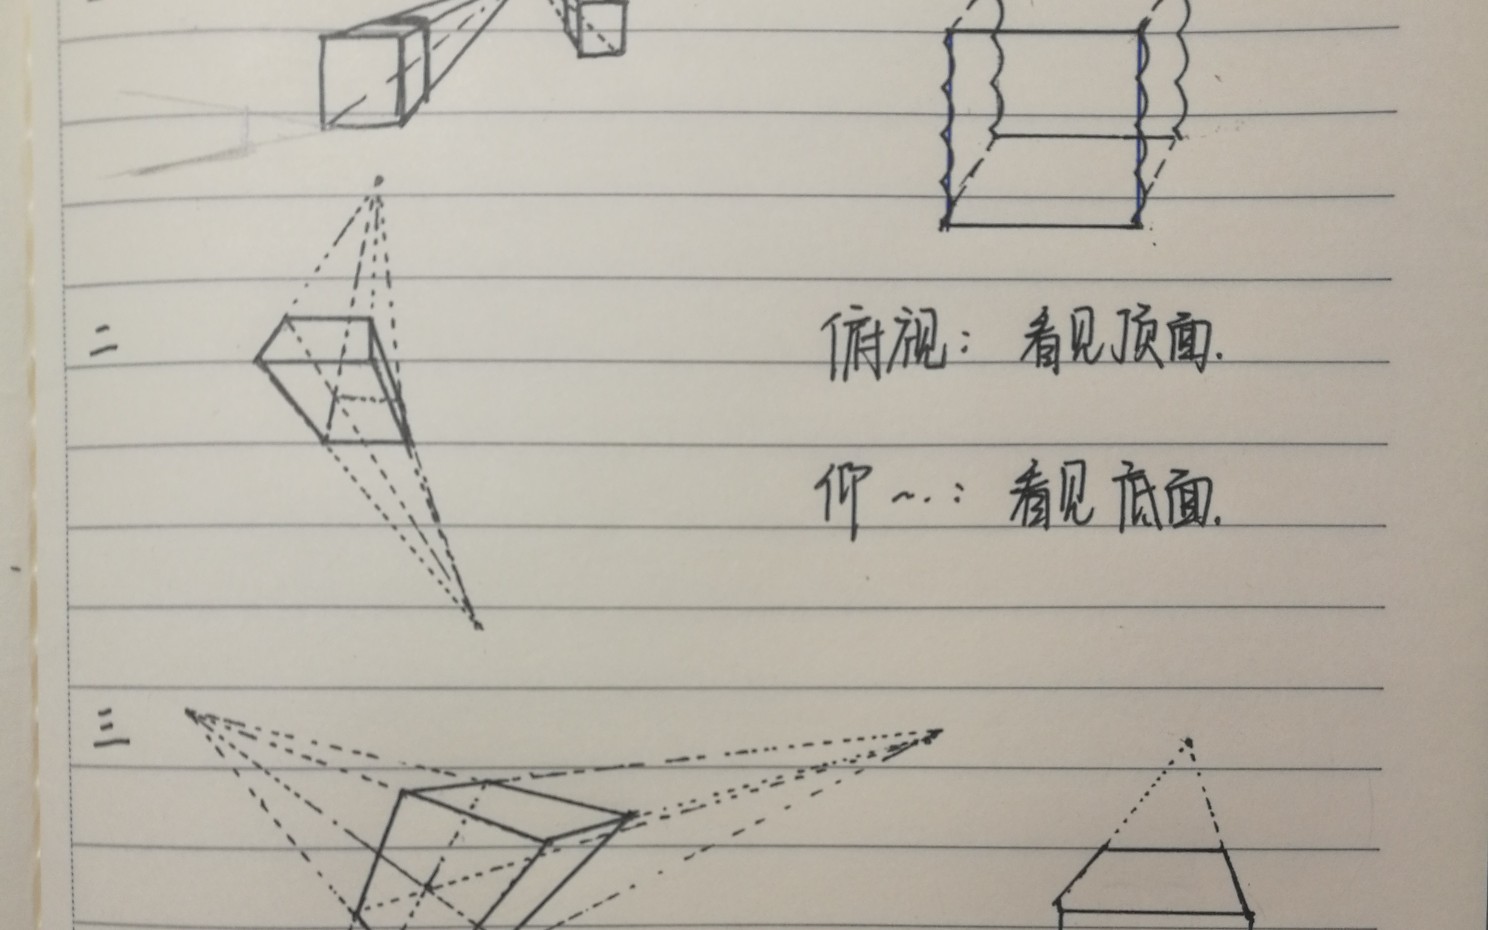 二
俯视：看见顶面.
仰～.：看见底面.
三